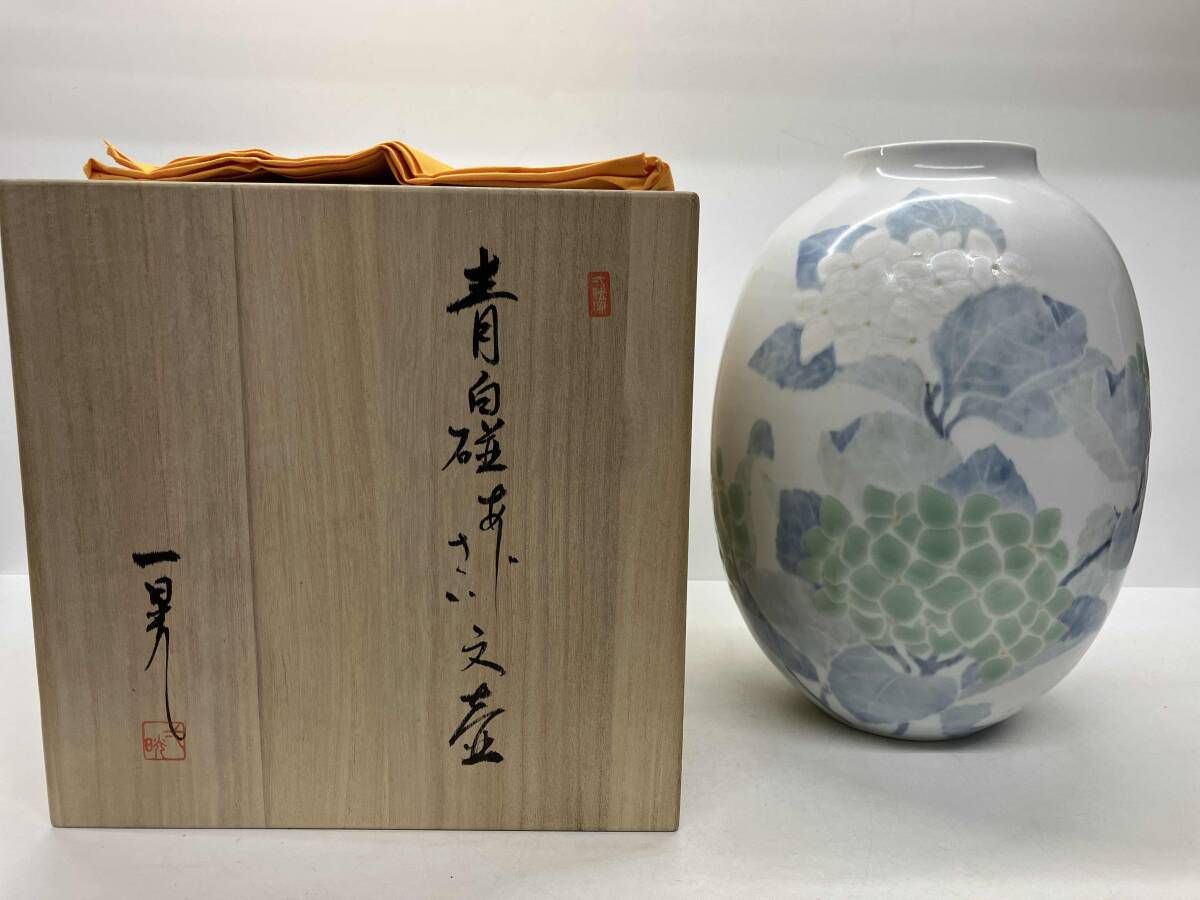 青白磁あじさい文壺
一晃